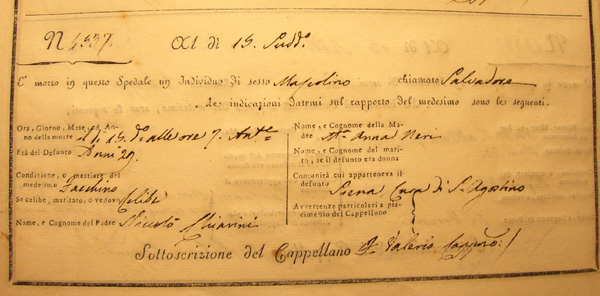 N 4337. Al di 13 Sudd.º
E' morto in questo Spedale un Individuo di sesso Mascolino chiamato Salvadore
Le indicazioni datemi sul rapporto del medesimo sono le seguenti.
Ora, Giorno, Mese, ed Anno della morte il dì 13 dº alle ore 7. Ant.e
Età del Defunto Anni 29.
Condizione, o mestiere del medesimo Facchino
Se celibe, maritato, o vedovo Celibe
Nome, e Cognome del Padre Niccolò Chiarini
Nome, e Cognome della Madre Mª Anna Neri
Nome, e Cognome del marito, se il defunto era donna
Comunità cui apparteneva il defunto Siena Cura di S. Agostino
Avvertenze particolari a piacimento del Cappellano
Sottoscrizione del Cappellano F. Valerio Capp.no